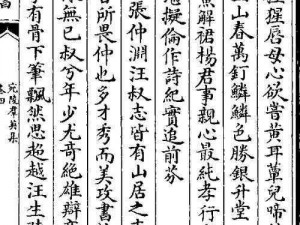 猩唇母心欲嘗黄耳蕈兒啼
山春萬釘鱗鱗色勝銀升堂
解裙楊君事親心最純孝行
擬倫作詩紀實追前芬
張仲淵汪叔志皆有山居之
所畏仲也多才秀而美攻書
無已叔兮年少尤奇絶雄辯
有骨下筆飄然思超越汪生
宛陵羣英集
卷四